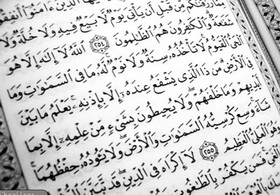 رَزَقْنَٰكُم مِّن قَبْلِ أَن يَأْتِىَ يَوْمٌ لَّا بَيْعٌ فِيهِ وَلَا خُلَّةٌ وَلَا
شَفَٰعَةٌ وَٱلْكَٰفِرُونَ هُمُ ٱلظَّٰلِمُونَ ٢٥٤ ٱللَّهُ لَآ إِلَٰهَ إِلَّا هُوَ
ٱلْحَىُّ ٱلْقَيُّومُ لَا تَأْخُذُهُۥ سِنَةٌ وَلَا نَوْمٌ لَّهُۥ مَا فِى ٱلسَّمَٰوَٰتِ وَمَا
فِى ٱلْأَرْضِ مَن ذَا ٱلَّذِى يَشْفَعُ عِندَهُۥٓ إِلَّا بِإِذْنِهِۦ يَعْلَمُ مَا بَيْنَ
أَيْدِيهِمْ وَمَا خَلْفَهُمْ وَلَا يُحِيطُونَ بِشَىْءٍ مِّنْ عِلْمِهِۦٓ إِلَّا بِمَا
شَآءَ وَسِعَ كُرْسِيُّهُ ٱلسَّمَٰوَٰتِ وَٱلْأَرْضَ وَلَا يَـُٔودُهُۥ حِفْظُهُمَا
وَهُوَ ٱلْعَلِىُّ ٱلْعَظِيمُ ٢٥٥ لَآ إِكْرَاهَ فِى ٱلدِّينِ قَد تَّبَيَّنَ
فَمَن يَكْفُرْ